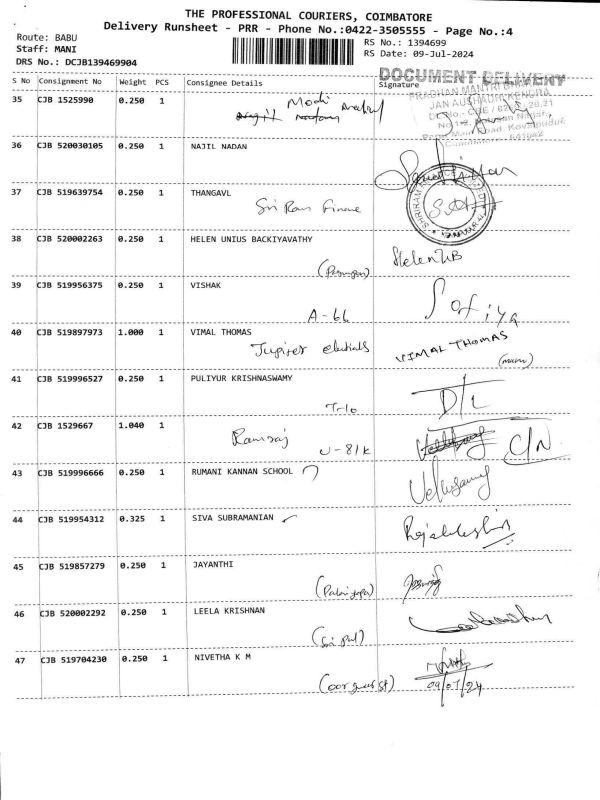 THE PROFESSIONAL COURIERS, COIMBATORE
Delivery Runsheet - PRR - Phone No.:0422-3505555 - Page No.:4
Route: BABU
Staff: MANI
DRS No.: DCJB139469904
RS No.: 1394699
RS Date: 09-Jul-2024
DOCUMENT DELIVERY
S No Consignment No Weight PCS Consignee Details Signature
35 CJB 1525990 0.250 1 Modi
PRADHAN MANTRI
JAN AUSHADHI KENDRA
36 CJB 520030105 0.250 1 NAJIL NADAN
37 CJB 519639754 0.250 1 THANGAVL
Sri Ram Finance
38 CJB 520002263 0.250 1 HELEN UNIUS BACKIYAVATHY
Helen UB
39 CJB 519956375 0.250 1 VISHAK
A-66 Sofiya
40 CJB 519897973 1.000 1 VIMAL THOMAS
VIMAL THOMAS
41 CJB 519996527 0.250 1 PULIYUR KRISHNASWAMY
D/L
42 CJB 1529667 1.040 1
Ramraj U-81K C/N
43 CJB 519996666 0.250 1 RUMANI KANNAN SCHOOL
Velusamy
44 CJB 519954312 0.325 1 SIVA SUBRAMANIAN
45 CJB 519857279 0.250 1 JAYANTHI
46 CJB 520002292 0.250 1 LEELA KRISHNAN
47 CJB 519704230 0.250 1 NIVETHA K M
09/07/24